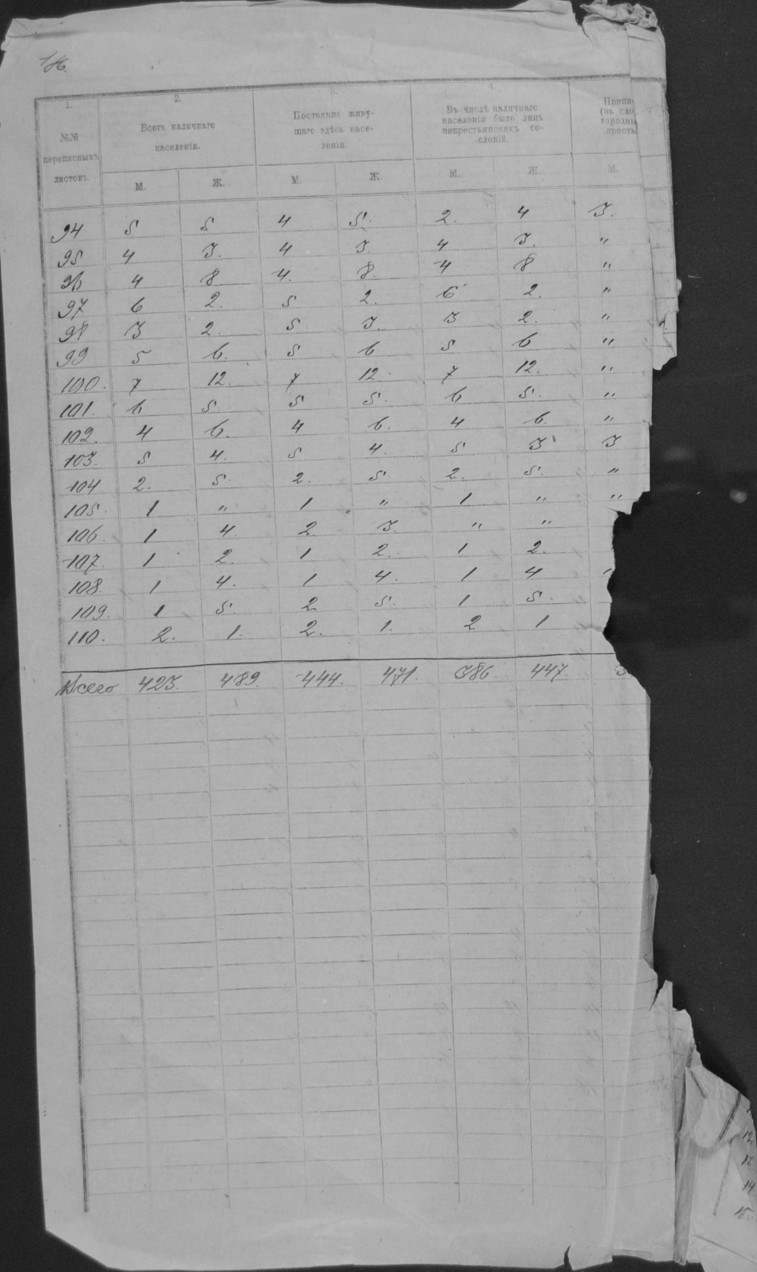 1. 2. 3. 4.
№№ переписныхъ листовъ. Всего наличнаго населенія. Постоянно живущаго здѣсь населенія. Въ числѣ наличнаго населенія было лицъ некрестьянскихъ сословій.
М. Ж. М. Ж. М. Ж. М.
94 5 5 4 5. 2. 4 3.
95 4 3. 4 3. 4 3. "
96 4 8 4. 8 4 8 "
97 6 2. 5 2. 6 2. "
98 3 2. 5 3. 3 2. "
99 5 6. 5 6 5 6 "
100. 7 12. 7 12. 7 12. "
101. 6 5 5 5. 6 5. "
102. 4 6. 4 6. 4 6. "
103. 5 4. 5 4. 5 3 3
104 2. 5. 2. 5 2. 5. "
105. 1 " 1 " 1 " "
106. 1 4. 2 3. " "
107. 1 2. 1 2. 1 2.
108. 1 4. 1 4. 1 4
109. 1 5. 2 5. 1 5.
110. 2. 1. 2. 1. 2 1
Всего 423. 489 444. 471. 386. 447
12
14